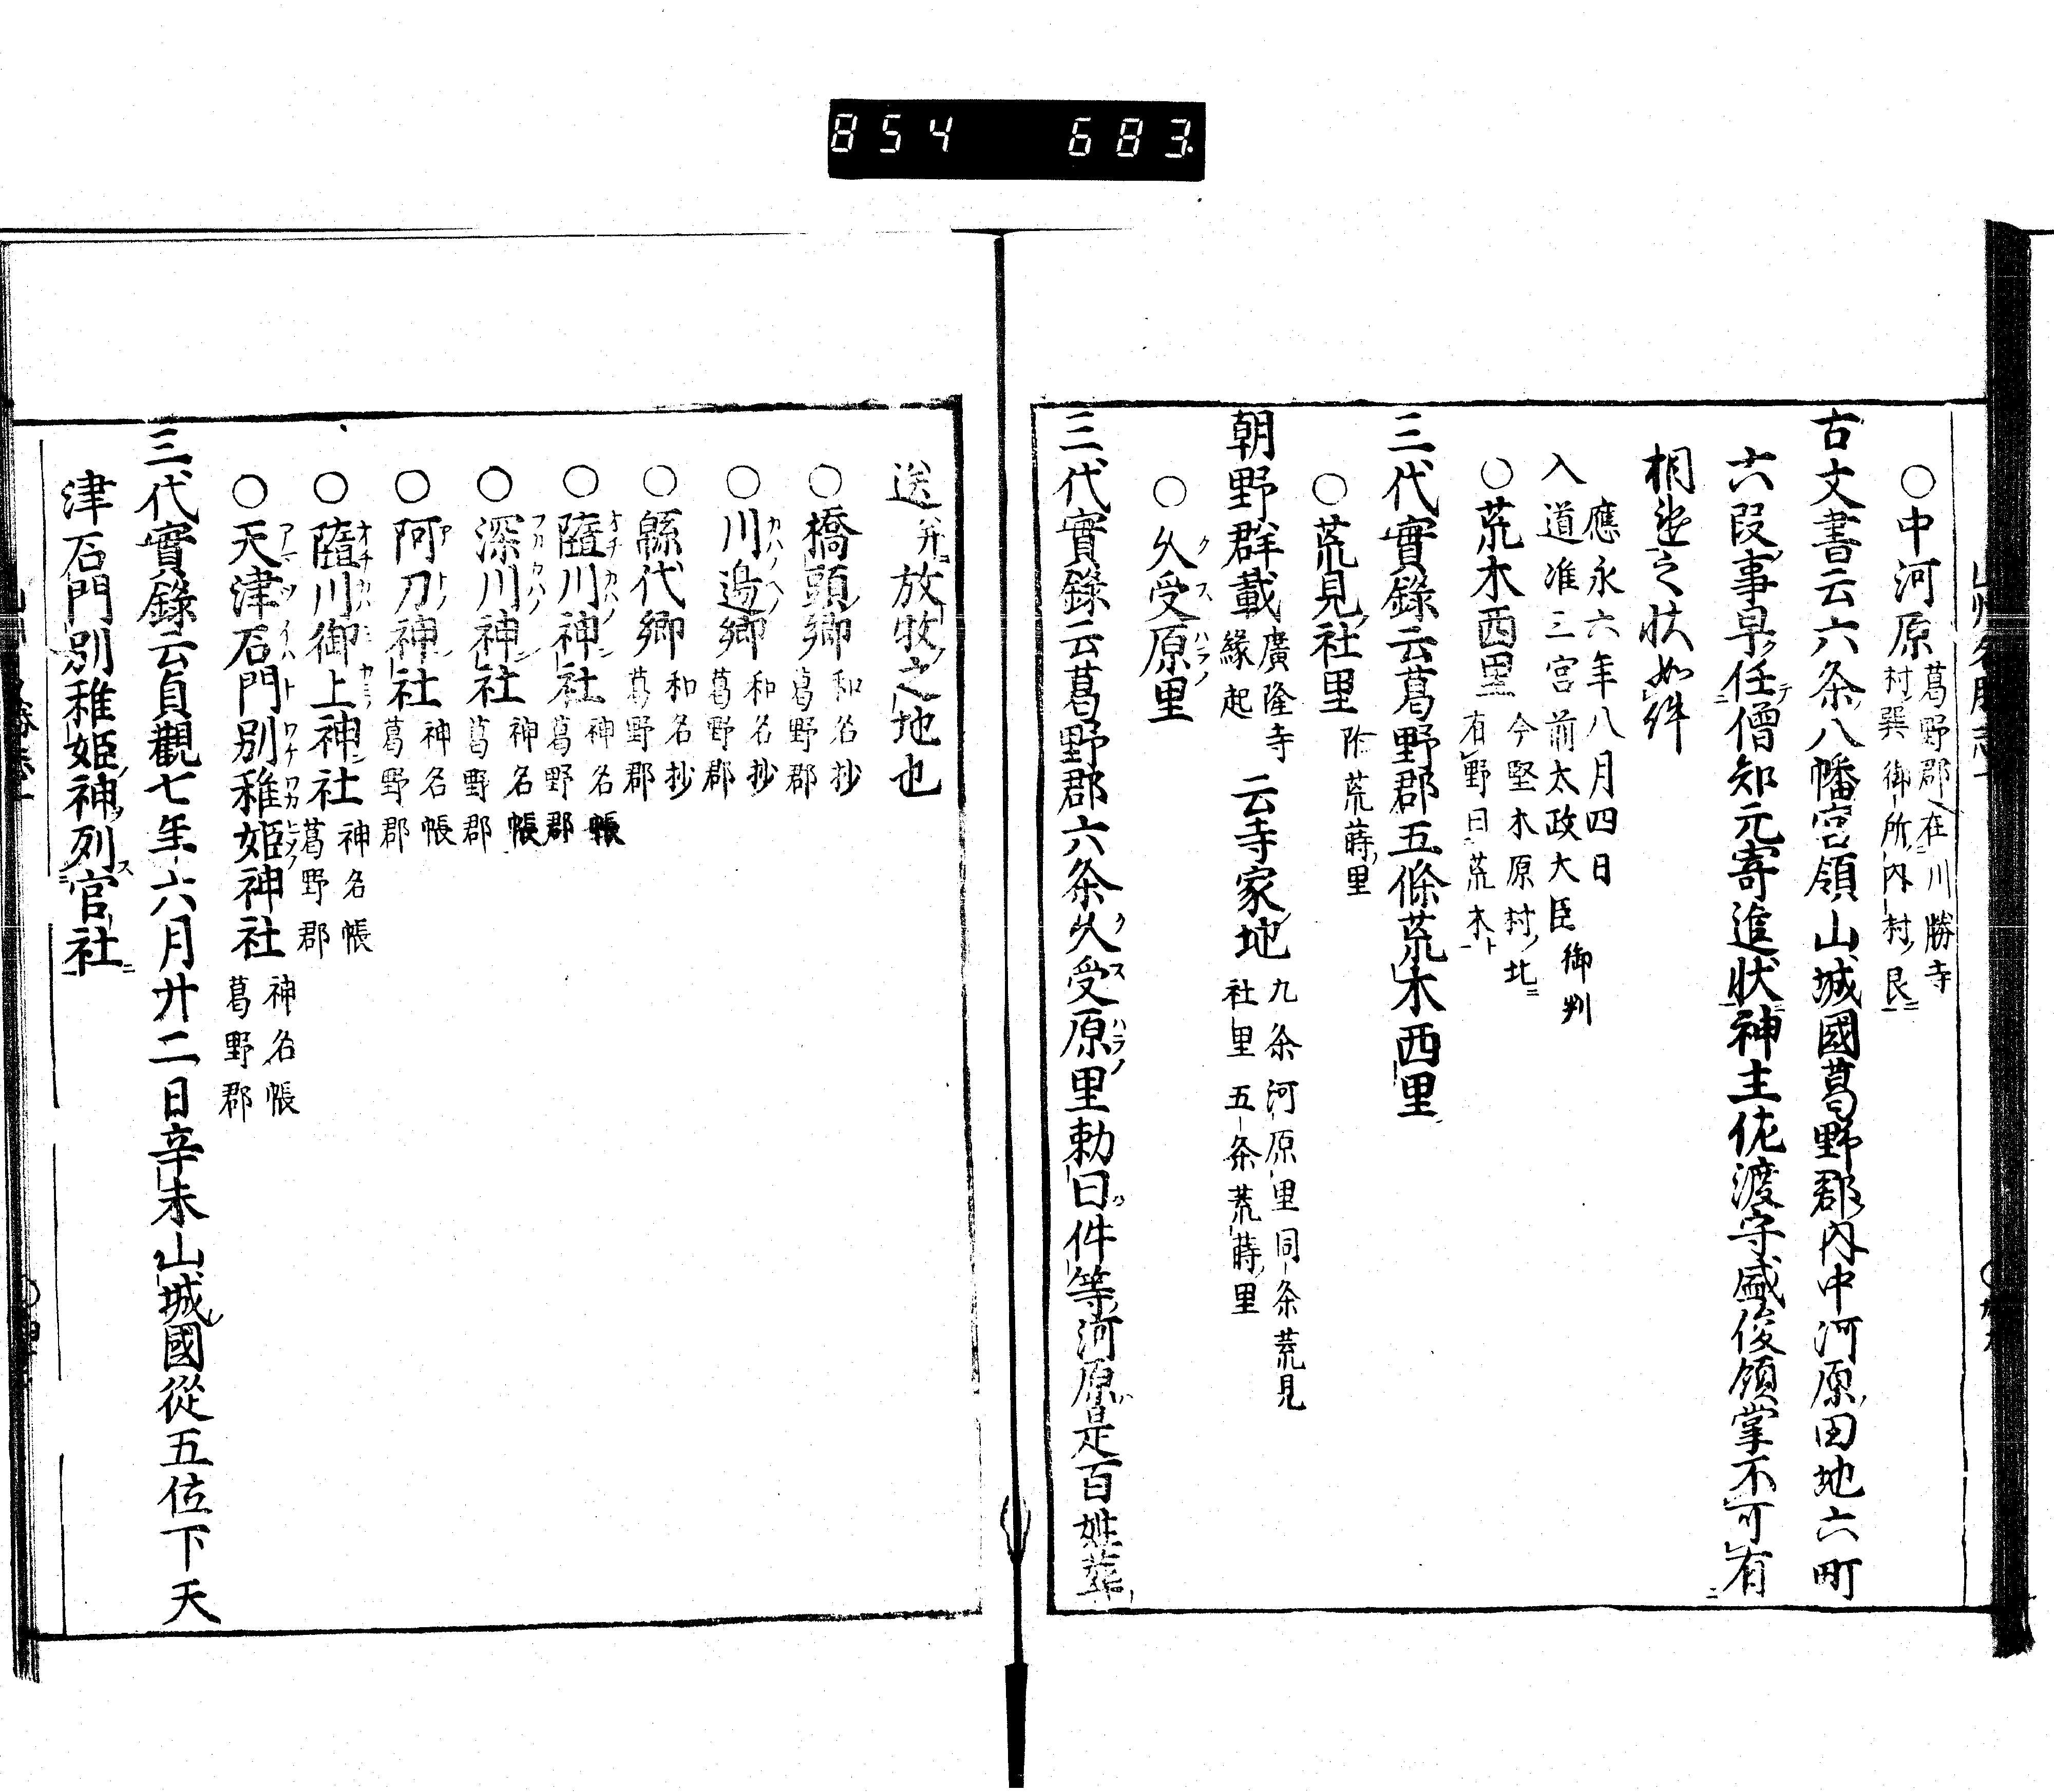 854 683
○中河原 葛野郡在川勝寺
村巽御所内村艮
古文書云六条八幡宮領山城國葛野郡内中河原田地六町
六段事早任僧知元寄進状神主佐渡守盛俊領掌不可有
相違之状如件
應永六年八月四日
入道准三宮前太政大臣 御判
○荒木西里 今堅木原村北
有野曰荒木
三代實錄云葛野郡五條荒木西里
○荒見社里 附荒蒔里
朝野群載 廣隆寺
緣起 云寺家地 九条河原里同条荒見
社里五条荒蒔里
○久受原里
三代實錄云葛野郡六条久受原里勅曰件等河原是百姓葬
送并放牧之地也
○橋頭鄉 和名抄
葛野郡
○川邊鄉 和名抄
葛野郡
○緜代鄉 和名抄
葛野郡
○隨川神社 神名帳
葛野郡
○深川神社 神名帳
葛野郡
○阿刀神社 神名帳
葛野郡
○隨川御上神社 神名帳
葛野郡
○天津石門別稚姫神社 神名帳
葛野郡
三代實錄云貞觀七年六月廾二日辛未山城國從五位下天
津石門別稚姫神列官社